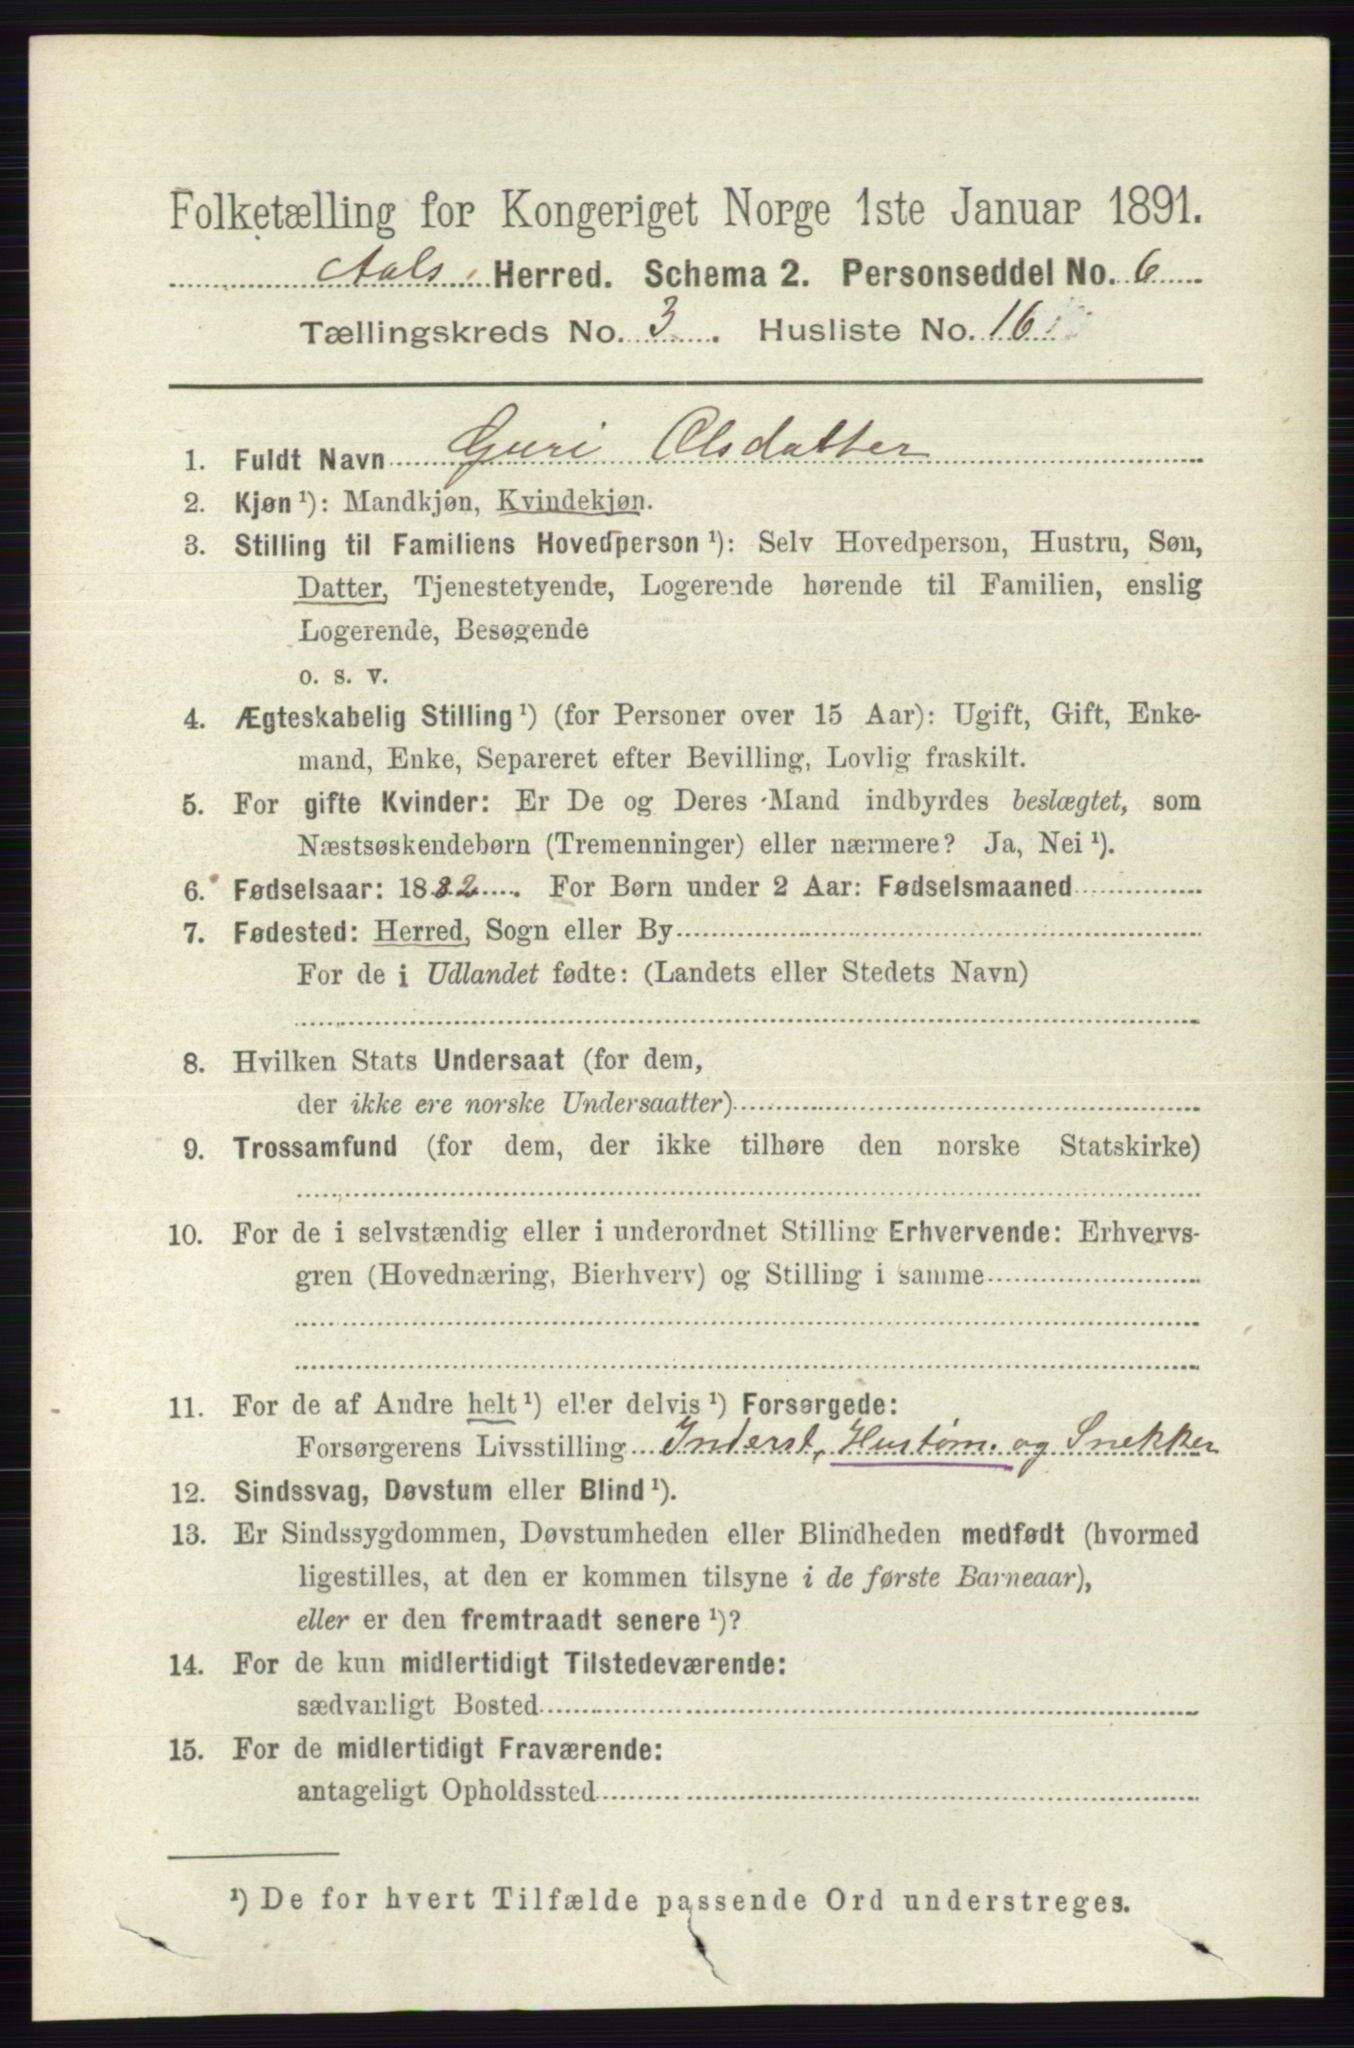 Folketælling for Kongeriget Norge 1ste Januar 1891.
Aals Herred. Schema 2. Personseddel No. 6
Tællingskreds No. 3. Husliste No. 16
1. Fuldt Navn Guri Olsdatter
2. Kjøn ¹): Mandkjøn, Kvindekjøn.
3. Stilling til Familiens Hovedperson ¹): Selv Hovedperson, Hustru, Søn,
Datter, Tjenestetyende, Logerende hørende til Familien, enslig
Logerende, Besøgende
o. s. v.
4. Ægteskabelig Stilling ¹) (for Personer over 15 Aar): Ugift, Gift, Enke-
mand, Enke, Separeret efter Bevilling, Lovlig fraskilt.
5. For gifte Kvinder: Er De og Deres Mand indbyrdes beslægtet, som
Næstsøskendebørn (Tremenninger) eller nærmere? Ja, Nei ¹).
6. Fødselsaar: 1882. For Børn under 2 Aar: Fødselsmaaned
7. Fødested: Herred, Sogn eller By
For de i Udlandet fødte: (Landets eller Stedets Navn)
8. Hvilken Stats Undersaat (for dem,
der ikke ere norske Undersaatter)
9. Trossamfund (for dem, der ikke tilhøre den norske Statskirke)
10. For de i selvstændig eller i underordnet Stilling Erhvervende: Erhvervs-
gren (Hovednæring, Bierhverv) og Stilling i samme
11. For de af Andre helt ¹) eller delvis ¹) Forsørgede:
Forsørgerens Livsstilling Inderst, Hustøm. og Snekker
12. Sindssvag, Døvstum eller Blind ¹).
13. Er Sindssygdommen, Døvstumheden eller Blindheden medfødt (hvormed
ligestilles, at den er kommen tilsyne i de første Barneaar),
eller er den fremtraadt senere ¹)?
14. For de kun midlertidigt Tilstedeværende:
sædvanligt Bosted
15. For de midlertidigt Fraværende:
antageligt Opholdssted
¹) De for hvert Tilfælde passende Ord understreges.